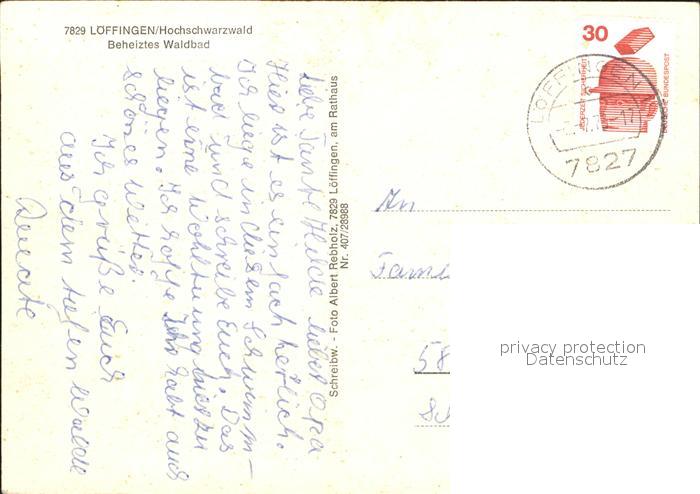 7829 LÖFFINGEN/Hochschwarzwald
Beheiztes Waldbad
Liebe Tante Hilde lieber Opa
Hier ist es einfach herlich.
Ich liege in diesem Schwimm-
bad und schreibe Euch. Das
ist eine Wohltuung hier zu
liegen. Ich hoffe Ihr habt auch
schönes Wetter.
Ich grüße Euch
aus dem tiefen Walde
Schreibw. - Foto Albert Rebholz, 7829 Löffingen, am Rathaus
Nr. 407/28988
30
JEDERZEIT SICHERHEIT
DEUTSCHE BUNDESPOST
LÖFFINGEN
7827
An
Fami
58
privacy protection
Datenschutz